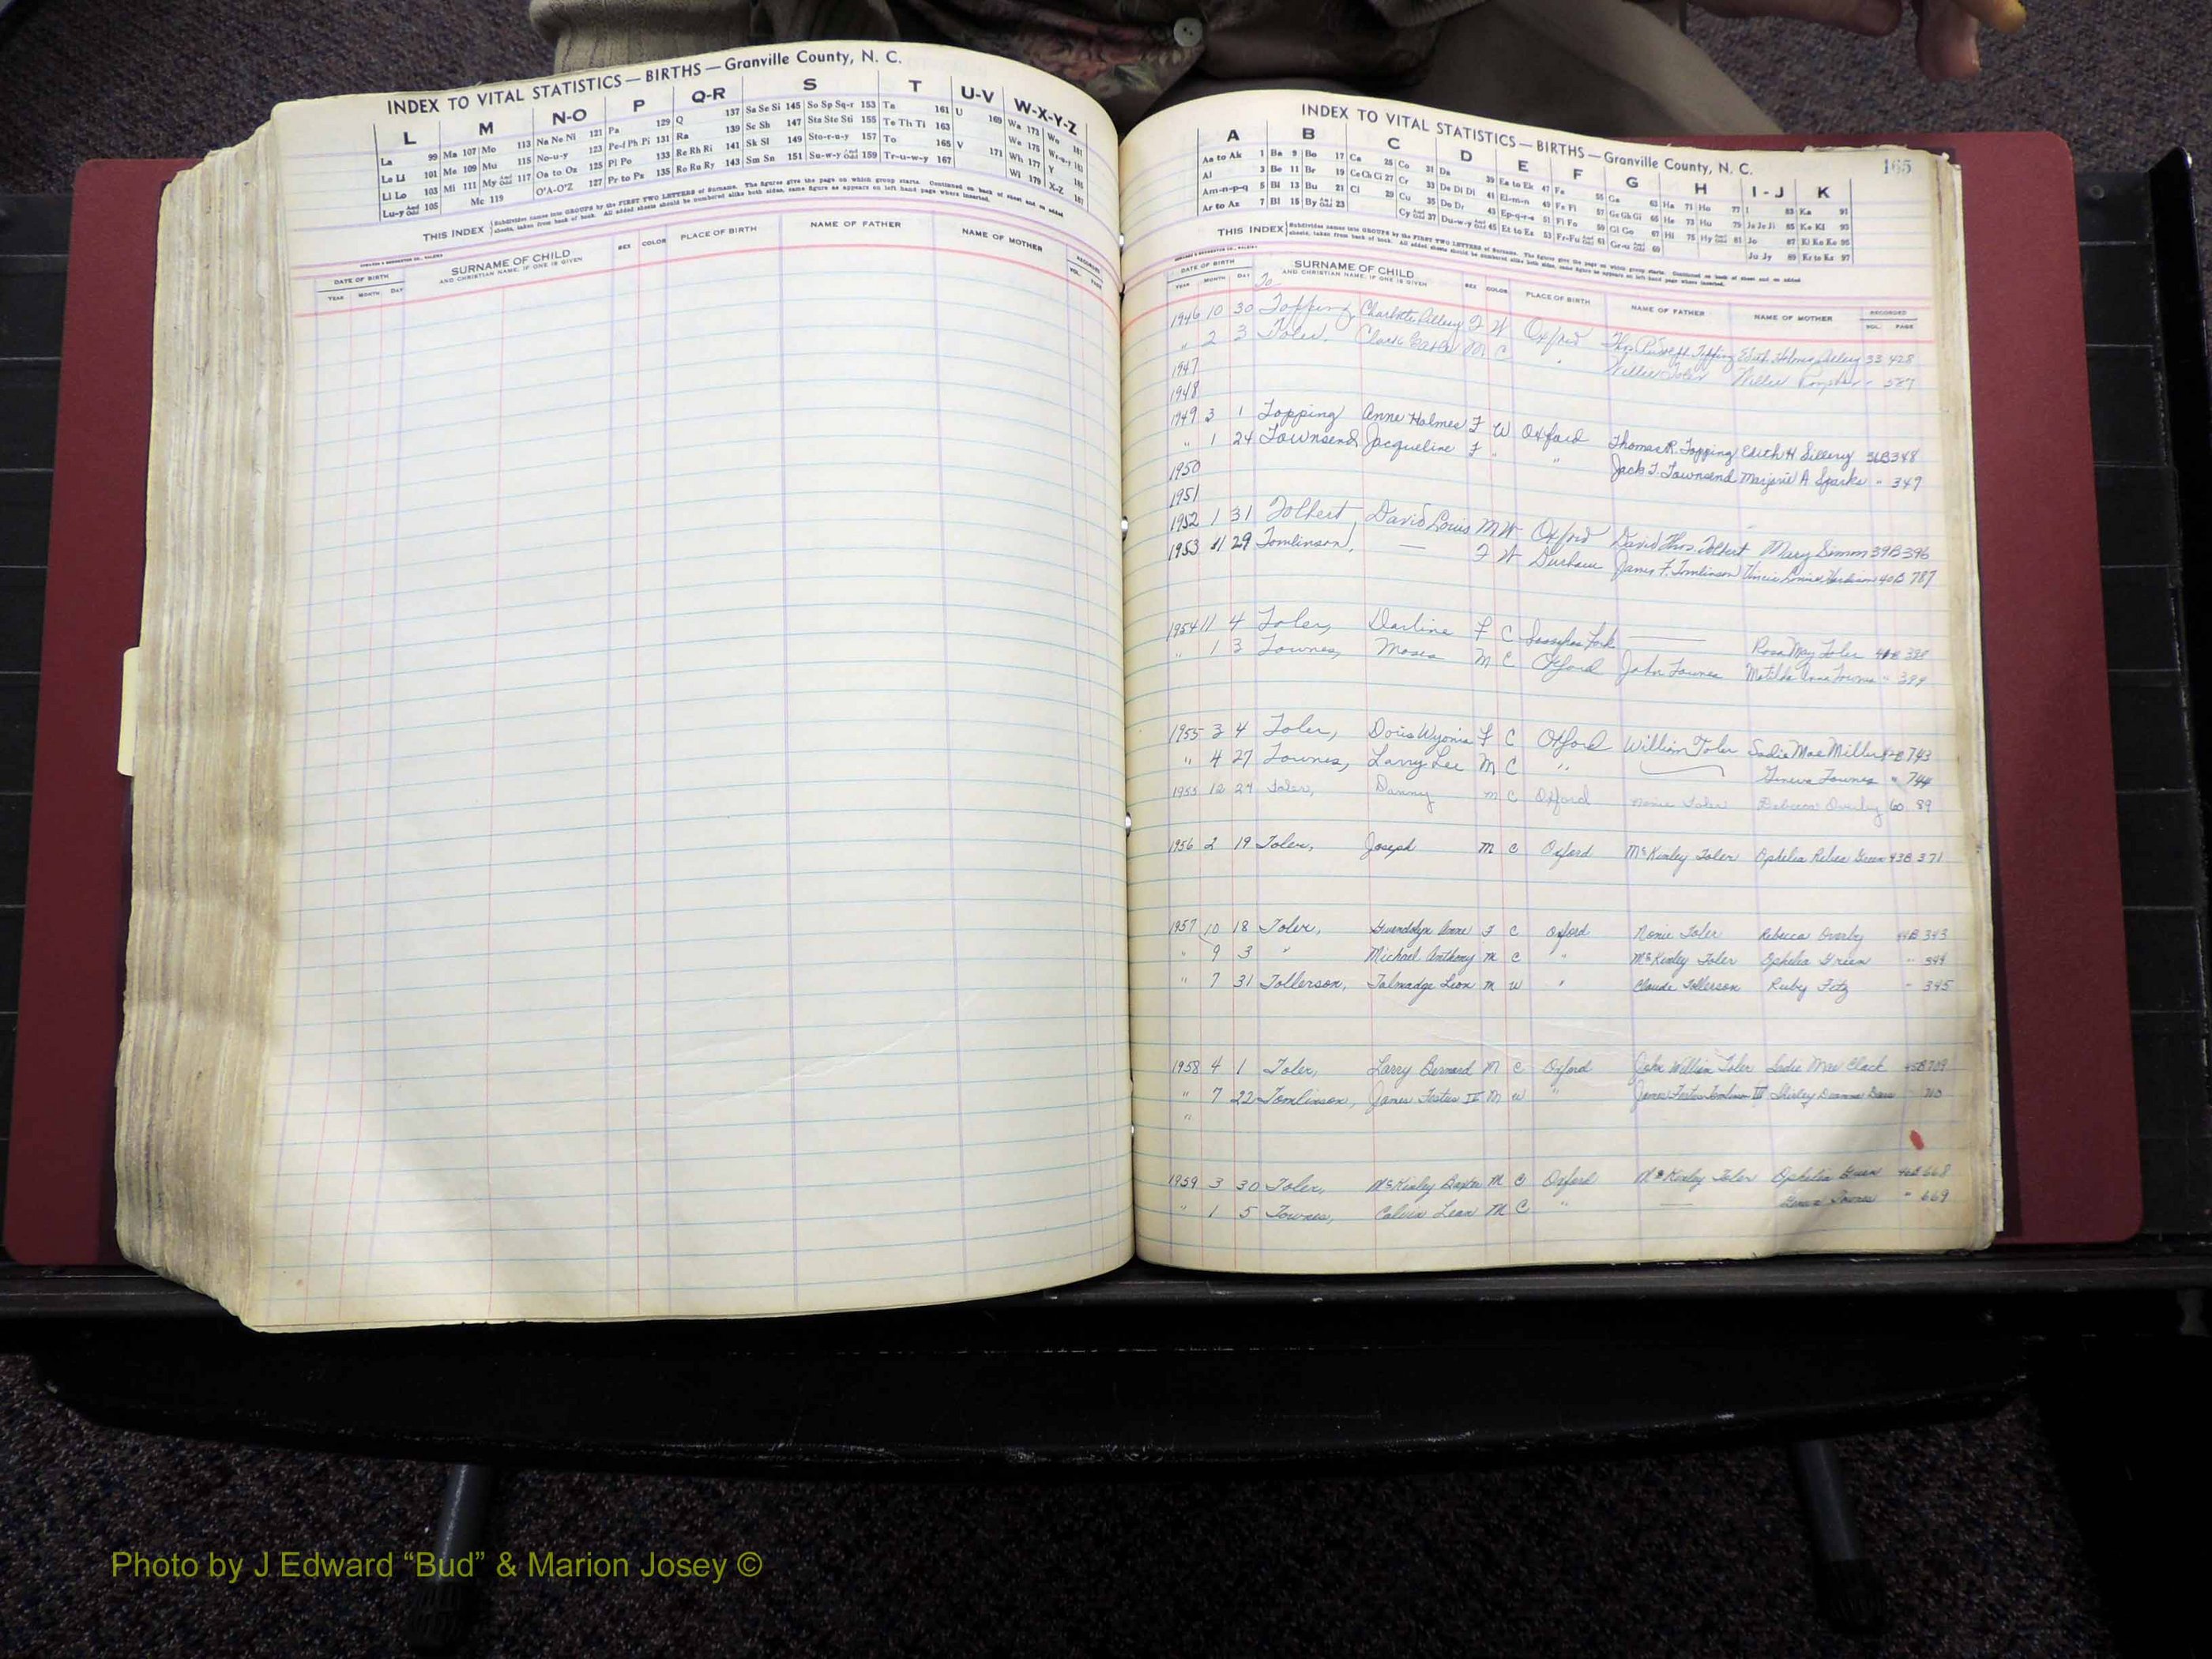 INDEX TO VITAL STATISTICS — BIRTHS — Granville County, N. C.
L M N-O P Q-R S T U-V W-X-Y-Z
La 99 Ma 107 Mo 113 Na Ne Ni 121 Pa 129 Q 137 Sa Se Si 145 So Sp Sq-r 153 Ta 161 U 169 Wa 173 Wo 181
Le Li 101 Me 109 Mu 115 No-u-y 123 Pe-f Ph Pi 131 Ra 139 Sc Sh 147 Sta Ste Sti 155 Te Th Ti 163 We 175 Wr-u-y 183
Li Lo 103 Mi 111 My And Odd 117 Oa to Oz 125 Pl Po 133 Re Rh Ri 141 Sk Sl 149 Sto-r-u-y 157 To 165 V 171 Wh 177 Y
Lu-y And Odd 105 Mc 119 O'A-O'Z 127 Pr to Ps 135 Ro Ru Ry 143 Sm Sn 151 Su-w-y And Odd 159 Tr-u-w-y 167 Wi 179 X-Z 187
THIS INDEX Subdivides names into GROUPS by the FIRST TWO LETTERS of Surname. The figures give the page on which group starts. Continued on back of sheet and on added
sheets, taken from back of book. All added sheets should be numbered alike both sides, same figure as appears on left hand page where inserted.
DATE OF BIRTH SURNAME OF CHILD SEX COLOR PLACE OF BIRTH NAME OF FATHER NAME OF MOTHER RECORDED
YEAR MONTH DAY AND CHRISTIAN NAME, IF ONE IS GIVEN VOL. PAGE
INDEX TO VITAL STATISTICS — BIRTHS — Granville County, N. C. 165
A B C D E F G H I-J K
Aa to Ak 1 Ba 9 Bo 17 Ca 25 Co 31 Da 39 Ea to Ek 47 Fa 55 Ga 63 Ha 71 Ho 77 I 83 Ka 91
Al 3 Be 11 Br 19 Ce Ch Ci 27 Cr 33 De Di Dj 41 El-m-n 49 Fe Fi 57 Ge Gh Gi 65 He 73 Hu 79 Ja Je Ji 85 Ke Kl 93
Am-n-p-q 5 Bi 13 Bu 21 Cl 29 Cu 35 Do Dr 43 Ep-q-r-s 51 Fl Fo 59 Gl Go 67 Hi 75 Hy And Odd 81 Jo 87 Kl Kn Ko 95
Ar to Az 7 Bl 15 By And Odd 23 Cy And Odd 37 Du-w-y And Odd 45 Et to Ez 53 Fr-Fu And Odd 61 Gr-u And Odd 69 Ju Jy 89 Kr to Kz 97
THIS INDEX Subdivides names into GROUPS by the FIRST TWO LETTERS of Surname. The figures give the page on which group starts. Continued on back of sheet and on added
sheets, taken from back of book. All added sheets should be numbered alike both sides, same figure as appears on left hand page where inserted.
DATE OF BIRTH SURNAME OF CHILD SEX COLOR PLACE OF BIRTH NAME OF FATHER NAME OF MOTHER RECORDED
YEAR MONTH DAY AND CHRISTIAN NAME, IF ONE IS GIVEN VOL. PAGE
To
1946 10 30 Topping, Charlotte F W Oxford Topping Edith Holmes 33 428
" 2 3 Toler, M C " Willie Toler Willie " 587
1947
1948
1949 3 1 Topping Anne Holmes F W Oxford Thomas R. Topping Edith H 36B 348
" 1 24 Townsend, Jacqueline F " " Jack T. Townsend Marjorie A Sparks " 349
1950
1951
1952 1 31 Tolbert, David Louis M W Oxford David Thos. Tolbert Mary Simm 39B 396
1953 11 29 Tomlinson, — F W Durham James F. Tomlinson Louise 40B 787
1954 11 4 Toler, Darline F C — Rosa May Toler 398
" 1 3 Townes, Moses M C Oxford John Townes Matilda Townes " 399
1955 3 4 Toler, Doris Wyonia F C Oxford William Toler Sadie Mae Miller 42B 743
" 4 27 Townes, Larry Lee M C " Geneva Townes " 744
1955 12 27 Toler, Danny M C Oxford Nonie Toler Rebecca Overby 60 89
1956 2 19 Toler, Joseph M C Oxford McKinley Toler Ophelia Green 43B 371
1957 10 18 Toler, Gwendolyn Anne F C Oxford Nonie Toler Rebecca Overby 44B 343
" 9 3 " Michael Anthony M C " McKinley Toler Ophelia Green " 344
" 7 31 Tollerson, Talmadge Leon M W " Claude Tollerson Ruby Fitz " 345
1958 4 1 Toler, Larry Bernard M C Oxford John William Toler Sadie Mae Clack 45B 709
" 7 22 Tomlinson, James Festus IV M W " James Festus Tomlinson III Shirley Deanna 710
"
1959 3 30 Toler, McKinley Baxter M C Oxford McKinley Toler Ophelia Green 46B 668
" 1 5 Townes, Calvin Leon M C " — Geneva Townes " 669
Photo by J Edward “Bud” & Marion Josey ©